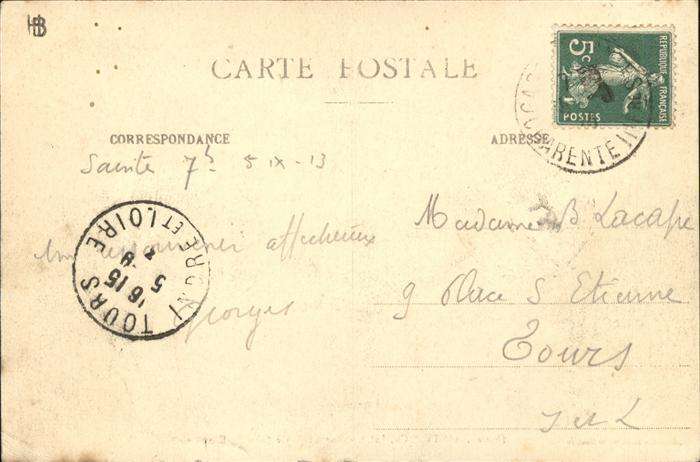 HB
CARTE POSTALE
CORRESPONDANCE
ADRESSE
5c
REPUBLIQUE FRANÇAISE
POSTES
CHARENTE
Sainte 7h 5 IX - 13
Un souvenir affectueux
Georges
TOURS
INDRE ET LOIRE
16 15
5 - 9
Madame B Lacape
9 Place S Etienne
Tours
I et L